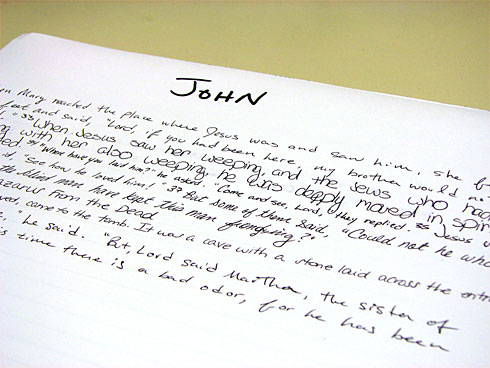 JOHN
Mary reached the place where Jesus was and saw him, she f
feet and said, "Lord, if you had been here, my brother would n
" 33 When Jesus saw her weeping, and the Jews who had
with her also weeping, he was deeply moved in spir
34 "Where have you laid him?" he asked. "Come and see, Lord," they replied. 35 Jesus w
"See how he loved him!" 37 But some of them said, "Could not he who
the blind man have kept this man from
Lazarus From the Dead
came to the tomb. It was a cave with a stone laid across the entr
" he said. "But, Lord said Martha, the sister of
s time there is a bad odor, for he has been